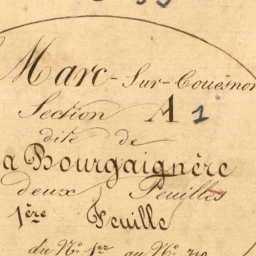 Marc-Sur-Couësnon
Section A 1
dite de
la Bourgaignère
deux Feuilles
1ère Feuille
du N° 1er au N°